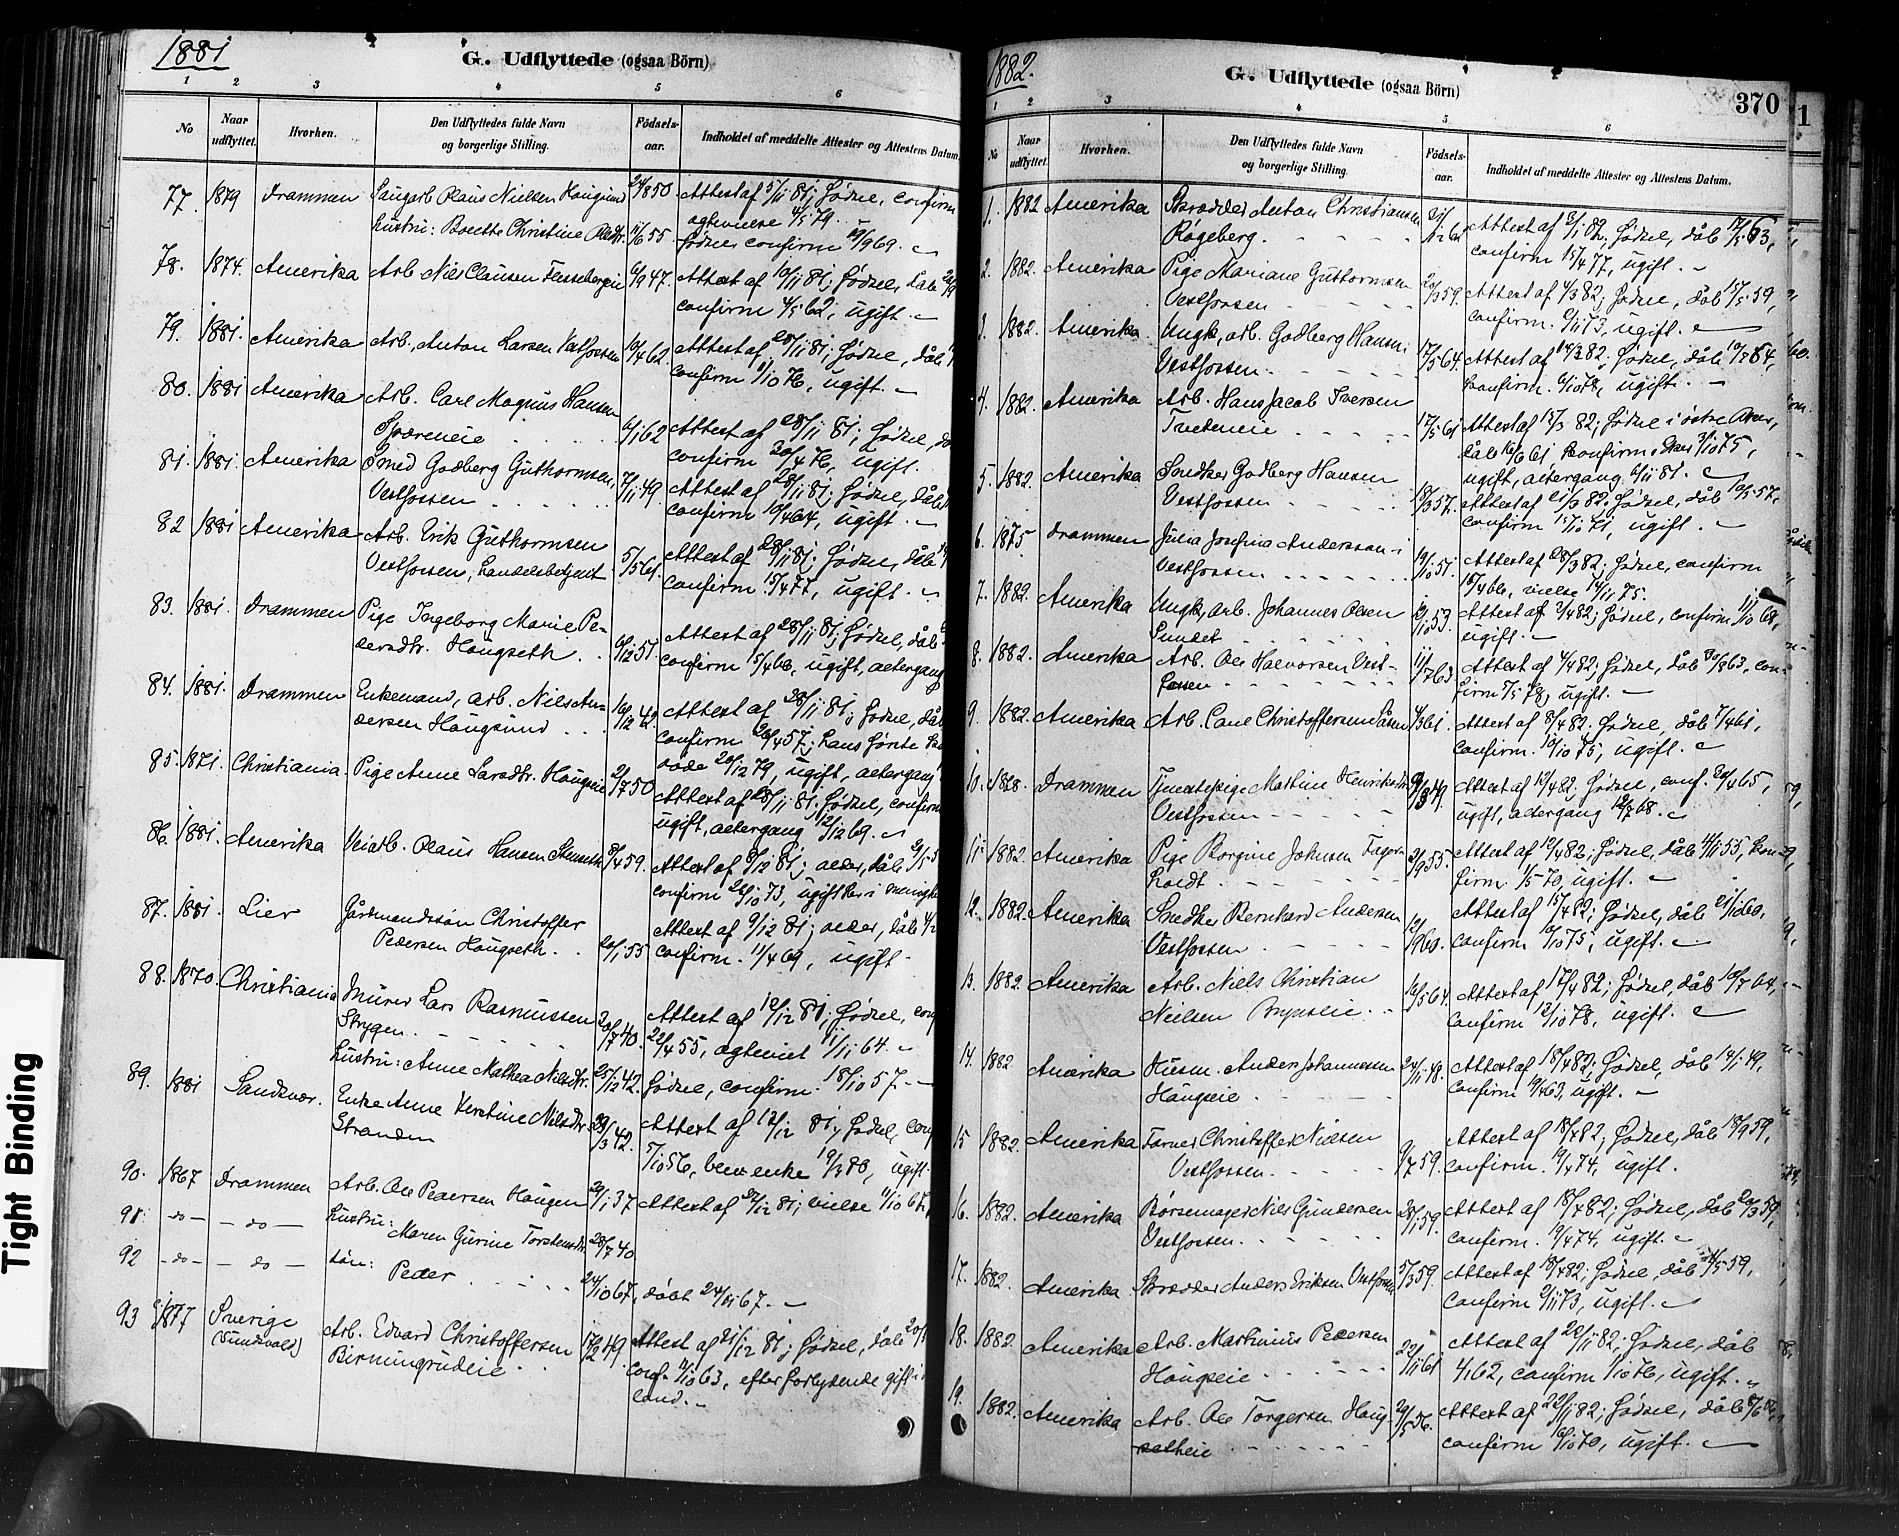 1881
G. Udflyttede (ogsaa Börn)
1 2 3 4 5 6
No
Naar udflyttet.
Hvorhen.
Den Udflyttedes fulde Navn og borgerlige Stilling.
Födsels-aar.
Indholdet af meddelte Attester og Attestens Datum.
77. 1879 Drammen Saugarb. Claus Nielsen Haugsund 50 Attest af 5/11 81; födsel, confirm
agtevielse 4/5 79.
hustru: Boette Christine 55 födsel confirm 69.
78. 1874. Amerika Arb. Niels Clausen 47. Attest af 10/11 81; födsel, dåb
confirm 4/5 62, ugift.
79. 1881. Amerika Arb. Anton Larsen Vestfossen 62 Attest af 28/11 81; födsel, dåb
confirm 1/10 76, ugift.
80. 1881 Amerika Arb. Carl Magnus Hansen
6/1 62 Attest af 28/11 81; födsel,
confirm 20/4 76, ugift.
81. 1881. Amerika Smed Godberg Guthormsen,
Vestfossen 7/11 49 Attest af 28/11 81; födsel, dåb
confirm 10/4 64, ugift.
82 1881 Amerika Arb. Erik Guthormsen
Vestfossen, Handelsbetjent 5/5 61. Attest af 28/11 81; födsel, dåb
confirm 15/4 77, ugift.
83. 1881. Drammen Pige Ingeborg Marie Pe-
dersdtr. Haugseth 6/12 51. Attest af 28/11 81; födsel, dåb
confirm 15/4 66, ugift, altergang
84. 1881. Drammen Enkemand, arb. Niels An-
dersen Haugsund 42. Attest af 28/11 81; födsel, dåb
confirm 26/4 57; hans förste
döde 20/12 79, ugift, altergang
85. 1871. Christiania. Pige Anne Larsdtr. Haugeie 2/7 50 Attest af 28/11 81. födsel, confirm
ugift, altergang 12/12 69.
86. 1881. Amerika Veiarb. Claus Hansen Stenseth 8/4 59. Attest af 8/12 81; alder, dåb
confirm 26/10 73, ugift her i menigh
87. 1881. Lier Gårdmandssön Christoffer
Pedersen Haugseth. 20/1 55 Attest af 9/12 81; alder, dåb
confirm. 11/4 69, ugift
88. 1870. Christiania Murer Lars Rasmussen
Strygen. 20/7 40. Attest af 10/12 81; födsel, conf
22/4 55, agteviet 1/11 64.
hustru: Anne Mathea Nilsdtr. 25/12 42. födsel, confirm. 18/10 57.
89. 1881 Sandsvær. Enke Anne Kirstine Nilsdtr.
Stranden 42. Attest af 12/12 81; födsel, conf
5/10 56, blev enke 19/3 80, ugift.
90. 1867 Drammen Arb. Ole Pedersen Haugen 29/1 37 Attest af 27/12 81; vielse 11/10 67,
91. -do- -do- hustru: Maren Gurine Torstensdtr. 28/7 40
92 -do- -do- sön: Peder 24/10 67, döbt 24/11 67.
93 1877 Sverige
(Sundsvald) Arb. Edvard Christoffersen
Birmingrudeie 17/2 49 Attest af 21/12 81; födsel, dåb
conf. 63, efter forlydende gift i
land.
1882.
G. Udflyttede (ogsaa Börn)
370
1 2 3 4 5 6
No
Naar udflyttet.
Hvorhen.
Den Udflyttedes fulde Navn og borgerlige Stilling.
Födsels-aar.
Indholdet af meddelte Attester og Attestens Datum.
1. 1882 Amerika Skrædder Anton Christiansen
Røgeberg. Attest af 82; födsel, dåb 63,
confirm 15/4 77, ugift.
2. 1882. Amerika Pige Mariane Guthormsen
Vestfossen 59. Attest af 4/3 82; födsel, dåb 15/5 59,
confirm. 6/11 73, ugift.
3. 1882. Amerika Ungk, arb. Godberg Hansen
Vestfossen. 17/5 64. Attest af 82; födsel, dåb 64,
confirm. 6/10 78, ugift.
4. 1882. Amerika Arb. Hans Jacob Iversen
Tvedeneie 17/5 61 Attest af 15/3 82; födsel i östre Aker,
dåb 16/6 61 confirm i Eker 3/10 75,
ugift, altergang 6/11 81.
5. 1882. Amerika Snedker Godberg Hansen
Vestfossen 18/3 57. Attest af 21/3 82; födsel, dåb 10/5 57,
confirm 15/10 71, ugift.
6. 1875 Drammen Julia Josefina Andersson i
Vestfossen 19/10 51. Attest af 28/3 82; födsel, confirm
15/4 66, vielse 14/11 75.
7. 1882. Amerika Ungk, arb. Johannes Olsen
Sundet 53. Attest af 3/4 82; födsel, confirm 11/10 68,
ugift.
8. 1882. Amerika Arb. Ole Halvorsen Vest-
fossen 11/7 63 Attest af 4/4 82; födsel, dåb 63, con-
firm 7/5 78, ugift.
9. 1882. Amerika Arb. Carl Christoffersen 4/3 61. Attest af 8/4 82. födsel, dåb 7/4 61,
confirm. 10/10 75, ugift.
10. 1878. Drammen Tjenestepige Mathine Henriksdtr.
Vestfossen 49. Attest af 12/4 82. födsel, conf. 20/4 65,
ugift, altergang 12/7 68.
11. 1882. Amerika Pige Borgine Johnsen Fager-
holdt. 2/9 55. Attest af 12/4 82; födsel, dåb 4/11 55, con-
firm. 1/5 70, ugift.
12. 1882. Amerika Snedker Bernhard Andersen
Vestfossen 60. Attest af 15/4 82; födsel, dåb 21/1 60,
confirm 10/10 75, ugift.
13. 1882. Amerika Arb. Niels Christian
Nielsen Brynseie. 16/5 64. Attest af 17/4 82; födsel, dåb 10/7 64,
confirm 13/10 78, ugift.
14. 1882 Amerika Husm. Anders Johannessen
Haugseie 24/11 48. Attest af 18/4 82; födsel, dåb 14/1 49,
confirm 19/4 63, ugift.
15 1882. Amerika Farver Christoffer Nielsen
Vestfossen 9/7 59. Attest af 18/4 82, födsel, dåb 18/9 59,
confirm. 19/4 74, ugift.
16. 1882. Amerika Börsemager Niels Gundersen
Vestfossen. 28/1 59. Attest af 18/4 82; födsel, dåb 20/3 59,
confirm. 19/4 74, ugift.
17. 1882. Amerika Skrædder Anders Eriksen Vestfossen 5/3 59. Attest af 18/4 82; födsel, dåb 59,
confirm. 2/11 73, ugift.
18. 1882. Amerika Arb. Martinius Pedersen
Haugseie 22/11 61 Attest af 20/11 82; födsel, dåb
4/1 62, confirm 1/10 76, ugift.
19. 1882. Amerika Arb. Ole Torgersen Haug-
setheie 29/5 56. Attest af 22/11 82; födsel, dåb 8/6 56,
confirm 16/10 70, ugift.
Tight Binding